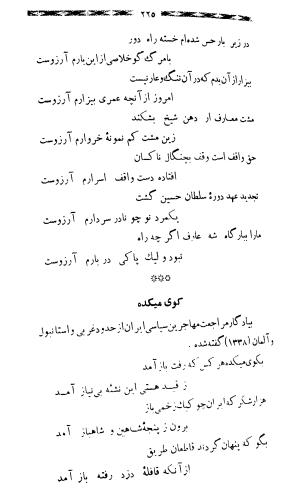 ۲۲۵
در زیر بار حس شده‌ام خسته راه دور
با مرگ گو خلاصی از این بارم آرزوست
بیزار از آن بدم که در آن ننگ و عار نیست
امروز از آنچه عمری بیزارم آرزوست
مشت معارف ار دهن شیخ بشکند
زین مشت کم نمونهٔ خروارم آرزوست
حق واقف است وقف بچنگال ناکسان
افتاده دست واقف اسرارم آرزوست
تجدید عهد دورهٔ سلطان حسین گشت
یکمرد نو چو نادر سردارم آرزوست
ما را ببارگاه شه عارف اگر چه راه
نبود و لیك پاکی دربارم آرزوست
***
کوی میکده
بیادگار مراجعت مهاجرین سیاسی ایران از حدود غربی و استانبول
و آلمان (۱۳۳۸) گفته‌شده.
بکوی میکده هر کس که رفت باز آمد
ز قید هستی این نشئه بی‌نیاز آمد
هزار شکر که ایران چو کبك زخمی باز
برون ز پنجهٔ شاهین و شاهباز آمد
بگو که پنهان گردند قاطعان طریق
از آنکه قافلهٔ دزد رفته باز آمد